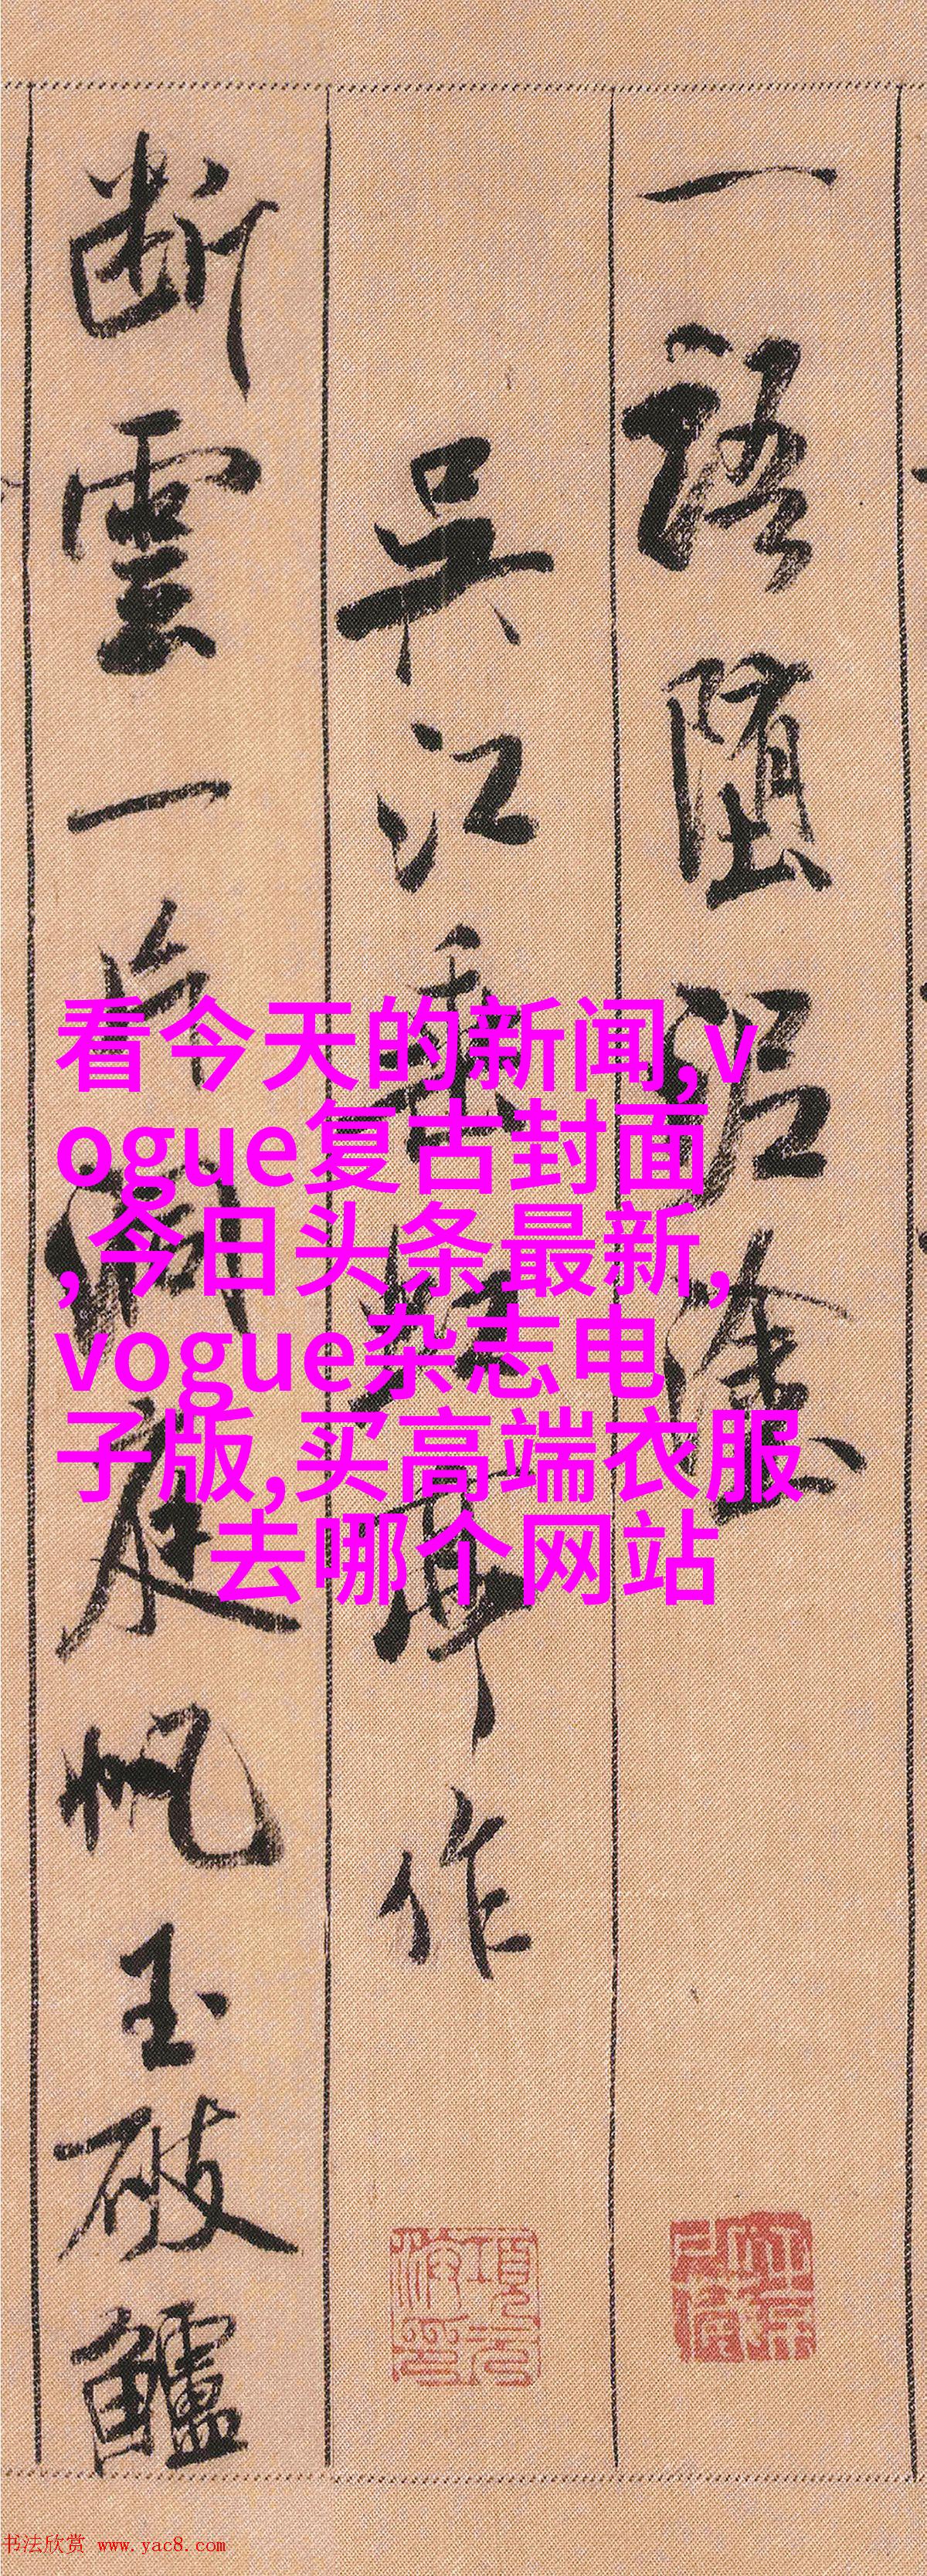 一語墮泥塗
吳江垂虹亭作
斷雲一片洞庭帆玉破鱸
看今天的新闻,v
ogue复古封面
,今日头条最新,
vogue杂志电
子版,买高端衣服
去哪个网站
书法欣赏 www.yac8.com